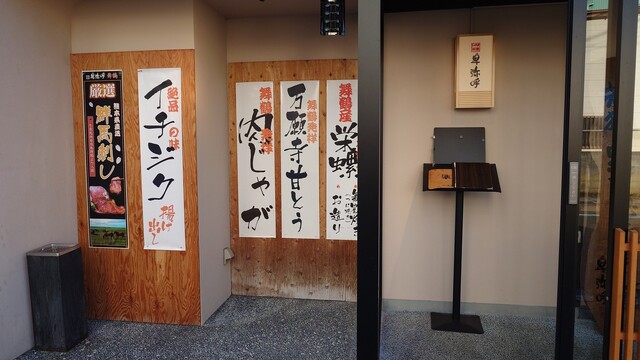 厳選
熊本県直送
鮮馬刺し
絶品の味
イチジク
揚げ出し
舞鶴発祥
肉じゃが
舞鶴発祥
万願寺甘とう
舞鶴産
栄螺
お造り
卑弥呼